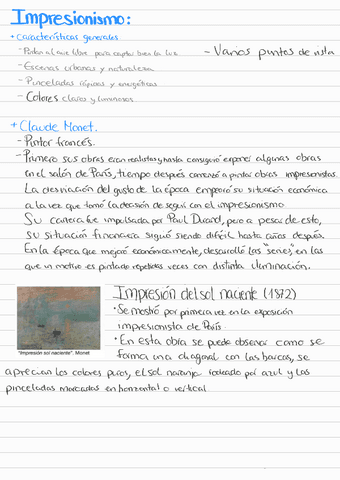 Impresionismo:
+ Características generales
- Pintar al aire libre para captar bien la luz
- Varios puntos de vista
- Escenas urbanas y naturaleza
- Pinceladas rápidas y energéticas
- Colores claros y luminosos
+ Claude Monet.
- Pintor francés.
- Primero sus obras eran realistas y hasta consiguió exponer algunas obras
en el salón de París, tiempo después comenzó a pintar obras impresionistas.
La desviación del gusto de la época empeoró su situación económica
a la vez que tomó la decisión de seguir con el impresionismo
Su carrera fue impulsada por Paul Durard, pero a pesar de esto,
su situación financiera siguió siendo difícil hasta años después.
En la época que mejoró económicamente, desarrolló las "series", en las
que un motivo es pintado repetidas veces con distinta iluminación.
Impresión del sol naciente (1872)
• Se mostró por primera vez en la exposición
impresionista de París.
• En esta obra se puede observar como se
forma una diagonal con las barcas, se
"Impresión sol naciente". Monet
aprecian los colores puros, el sol naranja rodeado por azul y las
pinceladas marcadas en horizontal o vertical.